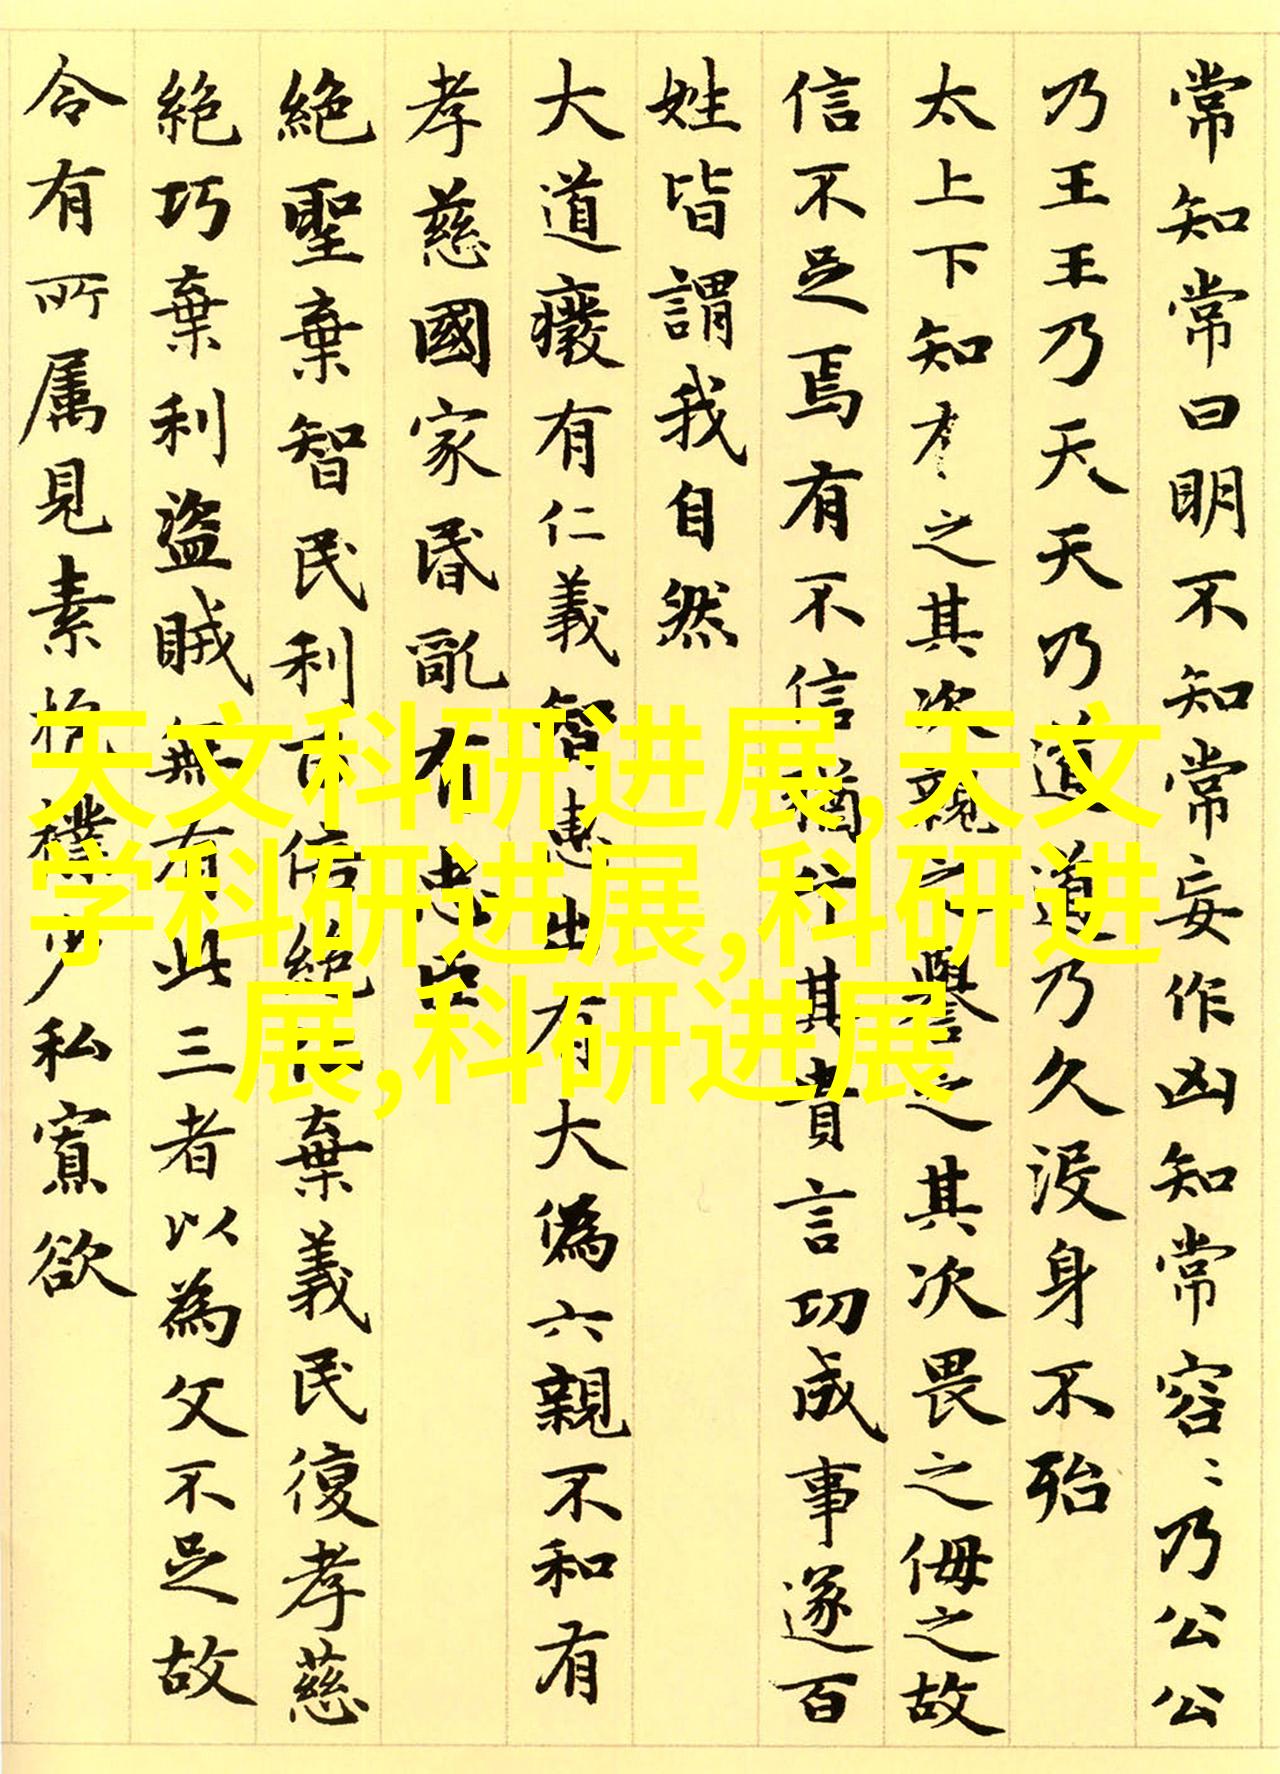 常知常曰明不知知常妄作凶知常容〻乃公公
乃王王乃天天乃道道乃久没身不殆
太上下知有之其次親之譽之其次畏之侮之故
信不足焉有不信猶其貴言功成事遂百
姓皆謂我自然
大道癈有仁義智惠出有大偽六親不和有
孝慈國家昬亂有忠臣
絶聖棄智民利百倍絶仁棄義民復孝慈
絶巧棄利盜賊無有此三者以為文不足故
令有所属見素抱樸少私寡欲
天文科研进展,天文
学科研进展,科研进
展,科研进展